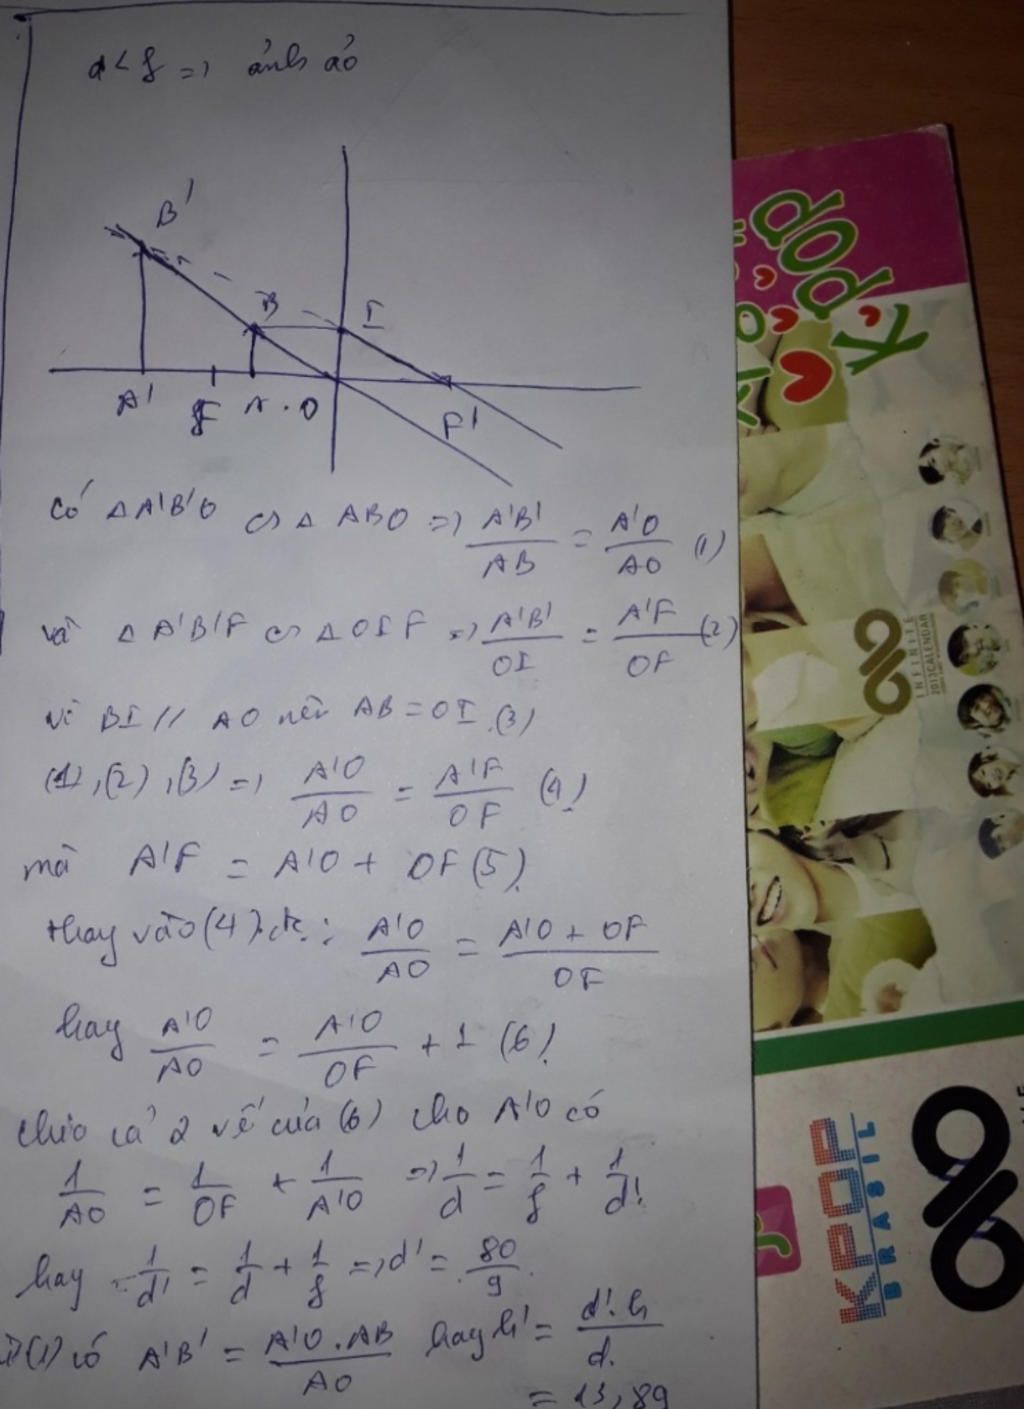 d < f => ảnh ảo
B'
B
I
A'
F
A
O
F'
Có Δ A'B'O ∽ Δ ABO => A'B'/AB = A'O/AO (1)
và Δ A'B'F ∽ Δ OIF => A'B'/OI = A'F/OF (2)
vì BI // AO nên AB = OI (3)
(1), (2), (3) => A'O/AO = A'F/OF (4)
mà A'F = A'O + OF (5)
thay vào (4) đc: A'O/AO = A'O + OF/OF
hay A'O/AO = A'O/OF + 1 (6)
chia cả 2 vế của (6) cho A'O có
1/AO = 1/OF + 1/A'O => 1/d = 1/f + 1/d'
hay 1/d' = 1/d + 1/f => d' = 80/9
(1) có A'B' = A'O.AB/AO hay h' = d'.h/d
= 13,89
KPOP
INFINITE
2013 CALENDAR
KPOP
BRASIL